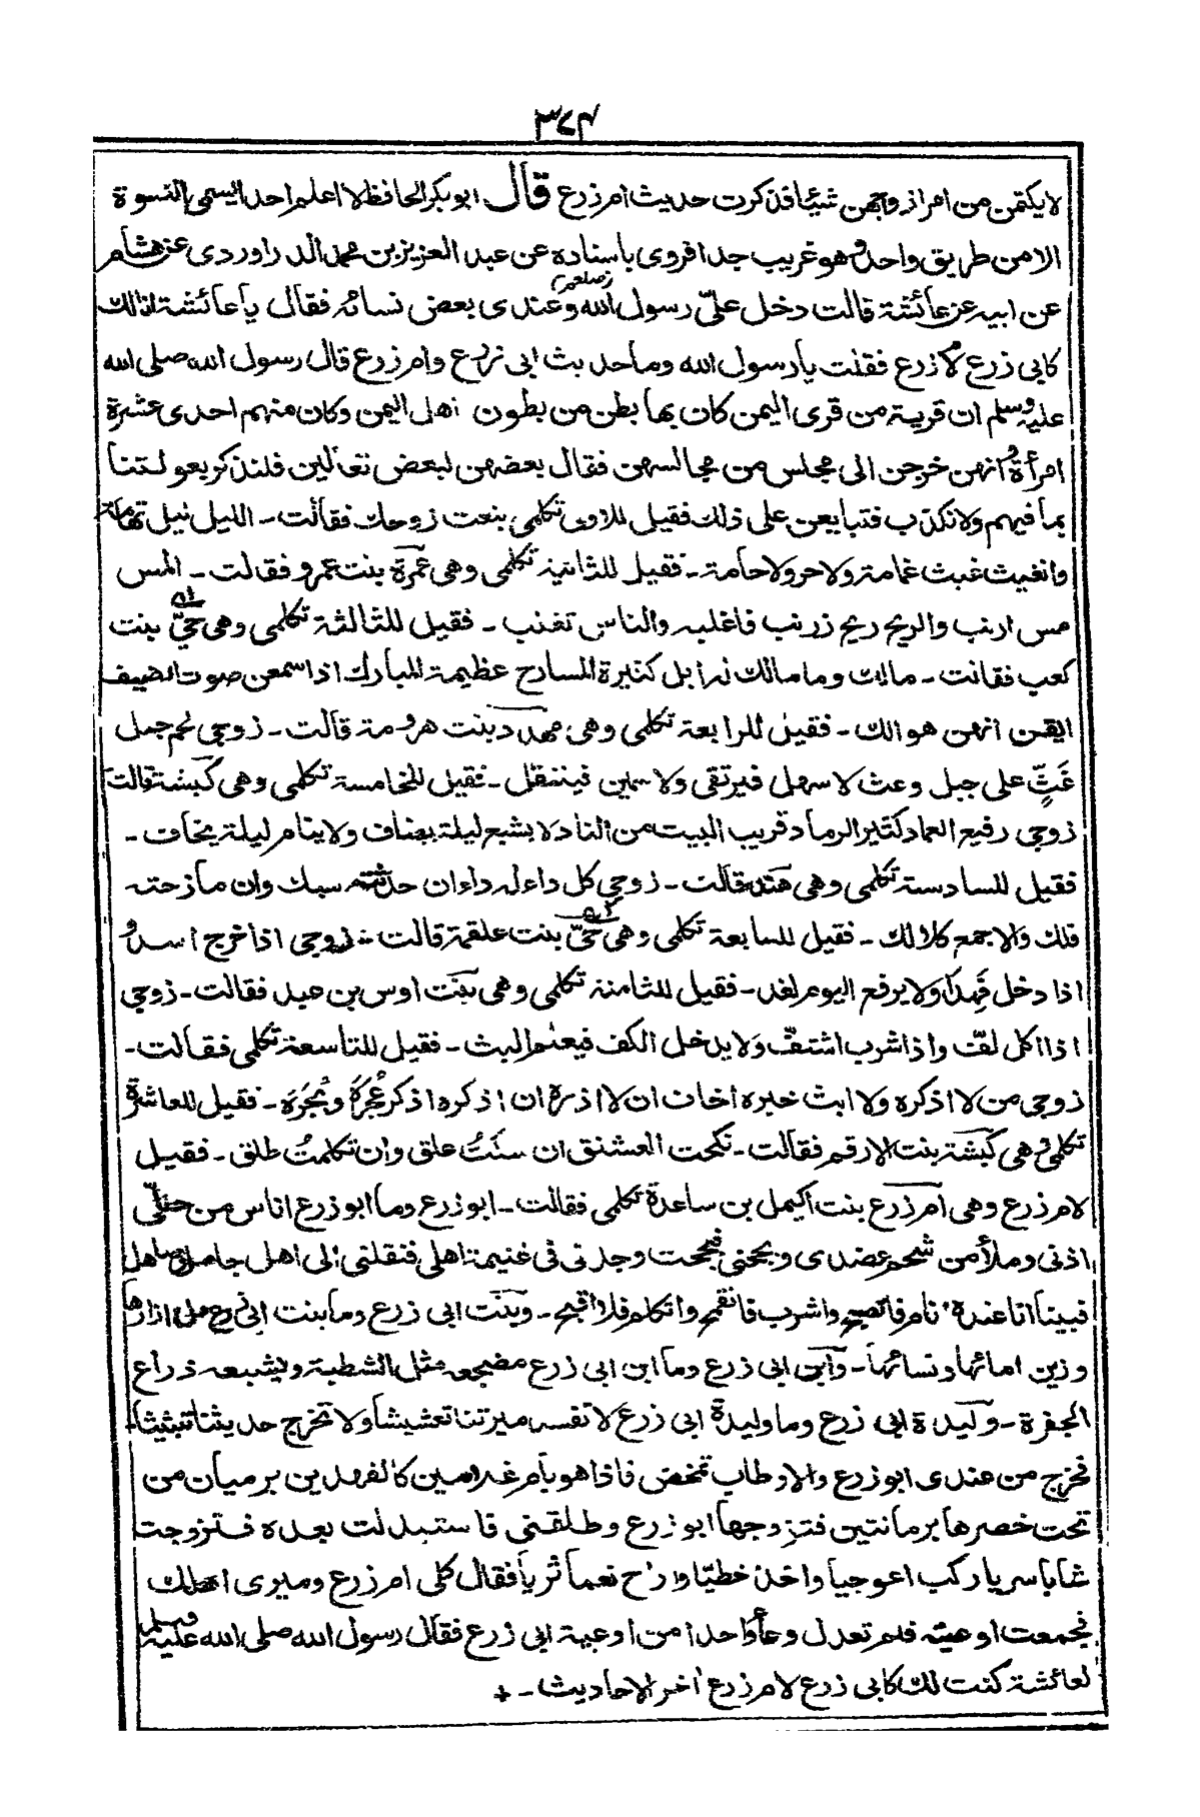 ٣٧٤
لا يكتمن من امر ازوجهن شيئا فذكرت حديث ام زرع قال ابوبكر الحافظ لا اعلم احدا يسمي النسوة
الا من طريق واحد وهو غريب جدا فروى باسناده عن عبد العزيز بن محمد الدراوردى عن هشام
عن ابيه عن عائشة قالت دخل علىّ رسول الله صلعم وعندى بعض نسائه فقال يا عائشة انا لك
كابى زرع لام زرع فقلت يا رسول الله وما حديث ابى زرع وام زرع قال رسول الله صلى الله
عليه وسلم ان قرية من قرى اليمن كان بها بطن من بطون اهل اليمن وكان منهم احدى عشرة
امرأة وانهن خرجن الى مجلس من مجالسهن فقال بعضهن لبعض تعالين فلنذكر بعولتنا
بما فيهم ولا نكذب فتبايعن على ذلك فقيل للاولى تكلمى بنعت زوجك فقالت ـ الليل ليل تهامة
والغيث غيث غمامة ولا حر ولا خامة ـ فقيل للثانية تكلمى وهى عمرة بنت عمرو فقالت ـ المس
مس ارنب والريح ريح زرنب فاغلبه والناس تغلب ـ فقيل للثالثة تكلمى وهى حبّى بنت
كعب فقالت ـ مالك وما مالك له ابل كثيرة المسارح عظيمة المبارك اذا سمعن صوت الضيف
ايقن انهن هوالك ـ فقيل للرابعة تكلمى وهى مهدد بنت هرومة قالت ـ زوجى لحم جمل
غَثٍّ على جبل وعث لا سهل فيرتقى ولا سمين فينتقل ـ فقيل للخامسة تكلمى وهى كبشة قالت
زوجى رفيع العماد كثير الرماد قريب البيت من الناد لا يشبع ليلة يضاف ولا ينام ليلة يخاف ـ
فقيل للسادسة تكلمى وهى هند قالت ـ زوجى كل داء له داء ان حدثته سبك وان مازحته
فلك والا جمع كلا لك ـ فقيل للسابعة تكلمى وهى حبّى بنت علقمة قالت ـ زوجى اذا خرج اسد و
اذا دخل فهد ولا يرفع اليوم لغد ـ فقيل للثامنة تكلمى وهى بنت اوس بن عبد فقالت ـ زوجى
اذا اكل لفّ واذا شرب اشتفّ ولا يدخل الكف فيعلم البث ـ فقيل للتاسعة تكلمى فقالت ـ
زوجى من لا اذكره ولا ابث خبره اخاف ان لا اذره ان اذكره اذكر عُجَرَه وبُجَرَه ـ فقيل للعاشرة
تكلمى وهى كبشة بنت الارقم فقالت ـ نكحت العشنق ان سكتُّ علق وان تكلمتُ طلق ـ فقيل
لام زرع وهى ام زرع بنت اكيمل بن ساعدة تكلمى فقالت ـ ابو زرع وما ابو زرع اناس من حلىّ
اذنى وملأ من شحم عضدى وبجحنى فبجحت وجدنى فى غنيمة اهلى فنقلنى الى اهل جامل وصاهل
فبينا انا عنده انام فاتصبح واشرب فاتقمح واتكلم فلا اقبح ـ وبنت ابى زرع وما بنت ابى زرع ملء ازارها
وزين امائها ونسائها ـ وابن ابى زرع وما ابن ابى زرع مضجعه مثل الشطبة ويشبعه ذراع
الجفرة ـ وليدة ابى زرع وما وليدة ابى زرع لا تفسد ميرتنا تعشيشا ولا تخرج حديثنا تبثيثا ـ
فخرج من عندى ابو زرع والاوطاب تمخض فاذا هو بام غلامين كالفهدين يرميان من
تحت خصرها برمانتين فتزوجها ابو زرع وطلقنى فاستبدلت بعده فتزوجت
شابا سريا ركب اعوجيا واخذ خطيّا واراح نعما ثريا فقال كلى ام زرع وميرى اهلك
فجمعت اوعيته فلم تعدل وعاء واحدا من اوعية ابى زرع فقال رسول الله صلى الله عليه وسلم
لعائشة كنت لك كابى زرع لام زرع اخر الاحاديث ـ +